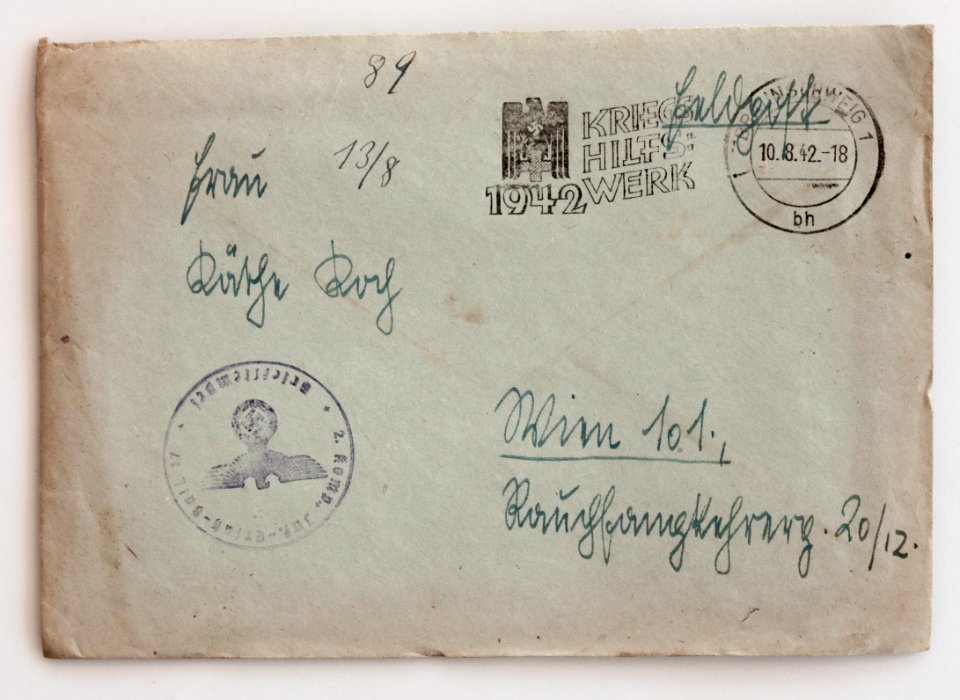 89
13/8
Feldpost
KRIEGS-
HILFS-
WERK
1942
BRAUNSCHWEIG 1
10.8.42.-18
bh
Frau
Käthe Koch
Wien 101.,
Rauchfangkehrerg. 20/12.
Briefstempel
2. Komp. Inf.-Ersatz-Batl.